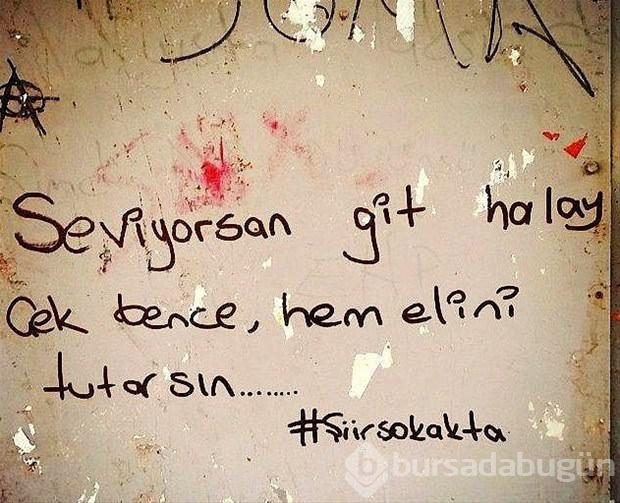 Seviyorsan git halay
Çek bence, hem elini
tutarsın........
#Şiirsokakta
bursadabugün